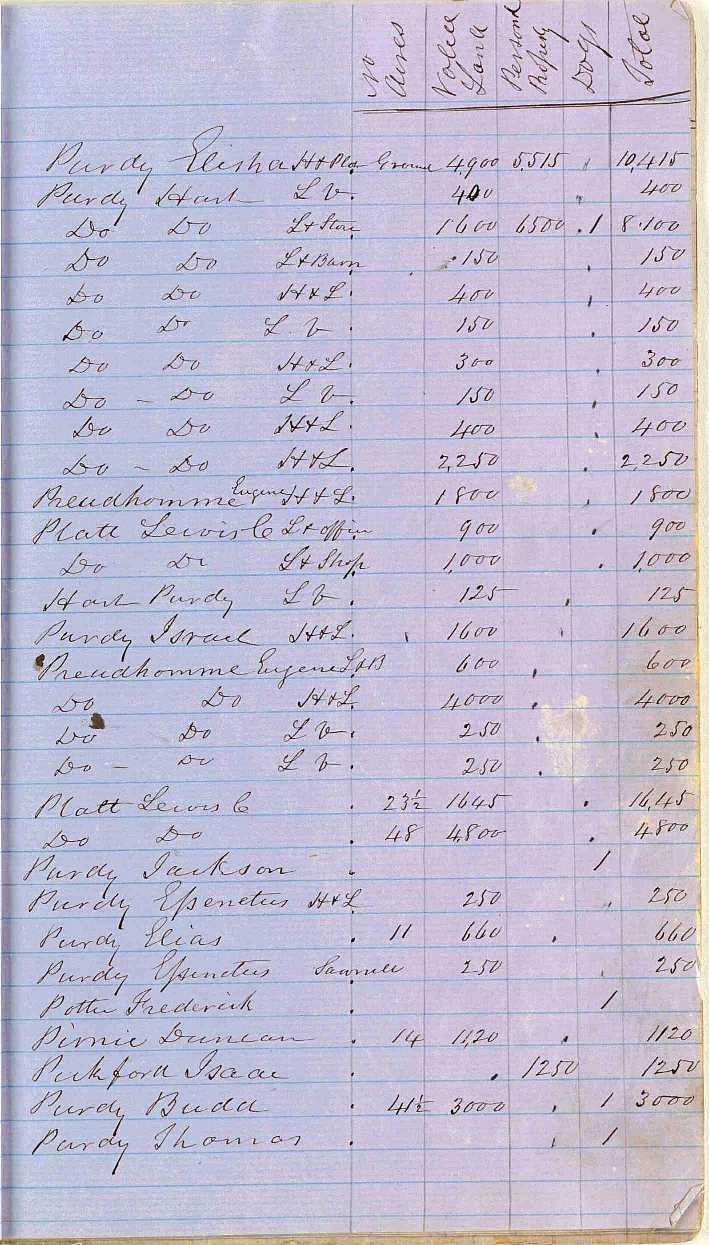 No Acres Value Land Personal Property Dogs Total
Purdy Elisha H+Pla Ground 4,900 5,515 10,415
Purdy Hart L V. 400 400
Do Do L+Store 1600 6500 1 8,100
Do Do L+Barn 150 150
Do Do H+L. 400 400
Do Do L V. 150 150
Do Do H+L. 300 300
Do - Do L V. 150 150
Do Do H+L. 400 400
Do - Do H+L. 2,250 2,250
Preudhomme Eugene H+L. 1800 1800
Platt Lewis C L+office 900 900
Do Do L+Shop 1,000 1,000
Hart Purdy L V. 125 125
Purdy Israel H+L. 1600 1600
Preudhomme Eugene L+B 600 600
Do Do H+L 4000 4000
Do Do L V. 250 250
Do - Do L V. 250 250
Platt Lewis C 23½ 1645 16,45
Do Do 48 4,800 4800
Purdy Jackson 1
Purdy Epenetus H+L 250 250
Purdy Elias 11 660 660
Purdy Epenetus Sawmill 250 250
Potter Frederick 1
Pirnie Duncan 14 11,20 1120
Pickford Isaac 1250 1250
Purdy Budd 41½ 3000 1 3000
Purdy Thomas 1